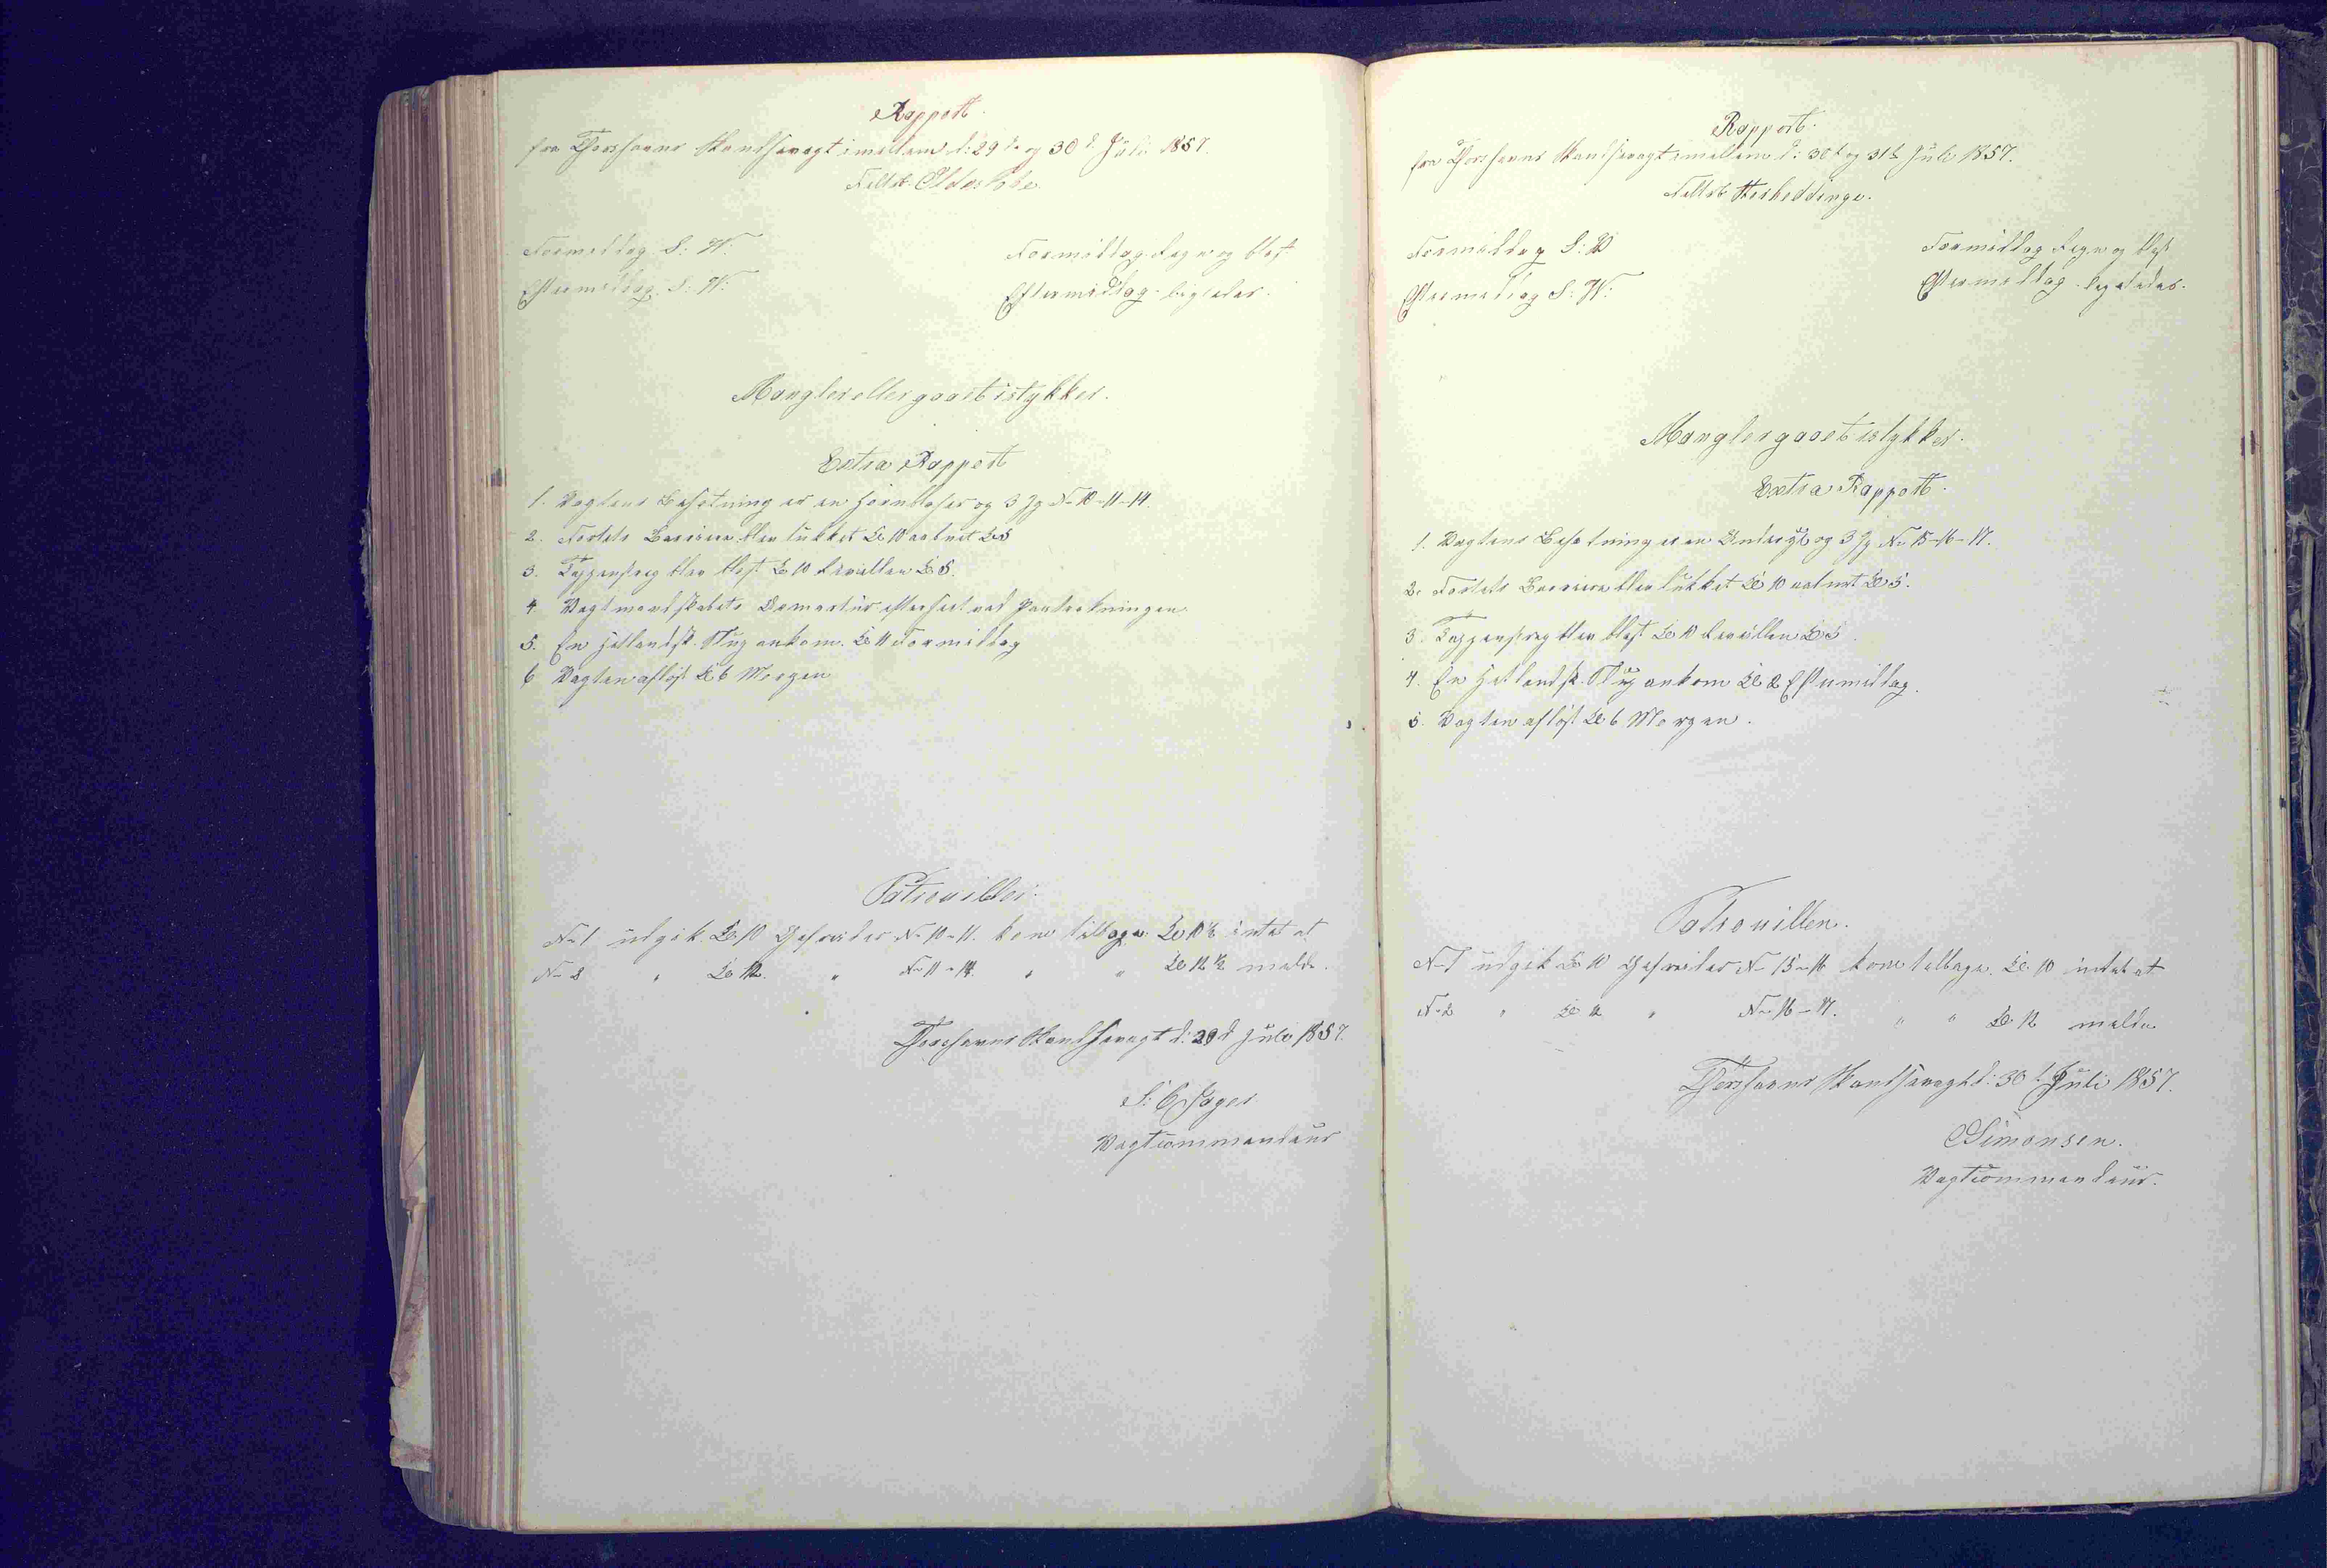 Rapport.
fra Thorshavns Skandsevagt imellem d: 29de og 30d Juli 1857.
Feltrb.
Formiddag S: W.
Eftermiddag S: W:
Formiddag Regn og blæst
Eftermiddag ligeledes.
Mangler eller gaaet istykker.
Extra Rapport
1. Vagtens Besætning er en Hornblæser og 3 Jg No 10-11-14.
2. Fortets Barriere blev lukket Kl 10 aabnet Kl 5
3. Tappenstreg blev blæst Kl 10 Reveillen Kl 5.
4. Vagtmandskabets Armatur efterseet ved Paatrækningen
5. En Hetlandsk Slup ankom Kl 11 Formiddag
6 Vagten afløst Kl 6 Morgen
Patrouiller.
No 1 udgik Kl. 10 Gefreider No 10-11. kom tilbage Kl 10½ intet at
No 2 " Kl 12. " No 11-14. " " Kl 12½ melde.
Thorshavns Skandsevagt d: 29d Juli 1857.
Vagtcommandeur
Rapport.
fra Thorshavns Skandsevagt imellem d: 30t og 31t Juli 1857.
Feltrb Storheddinge.
Formiddag S: W
Eftermiddag S: W:
Formiddag Regn og blæst
Eftermiddag ligeledes.
Mangler gaaet istykker.
Extra Rapport.
1. Vagtens Besætning er en Underjg og 3 Jg No 15-16-17.
2. Fortets Barriere blev lukket Kl 10 aabnet Kl 5.
3. Tappenstreg blev blæst Kl 10 Reveillen Kl 5.
4. En Hetlandsk Slup ankom Kl 2 Eftermiddag.
5. Vagten afløst Kl 6 Morgen.
Patrouillen.
No 1 udgik Kl 10 Gefreider No 15-16 kom tilbage. Kl. 10 intet at
No 2 " Kl 12 " No 16-17. " " Kl 12 melde
Thorshavns Skandsevagt d: 30t Juli 1857.
Simonsen.
Vagtcommandeur.